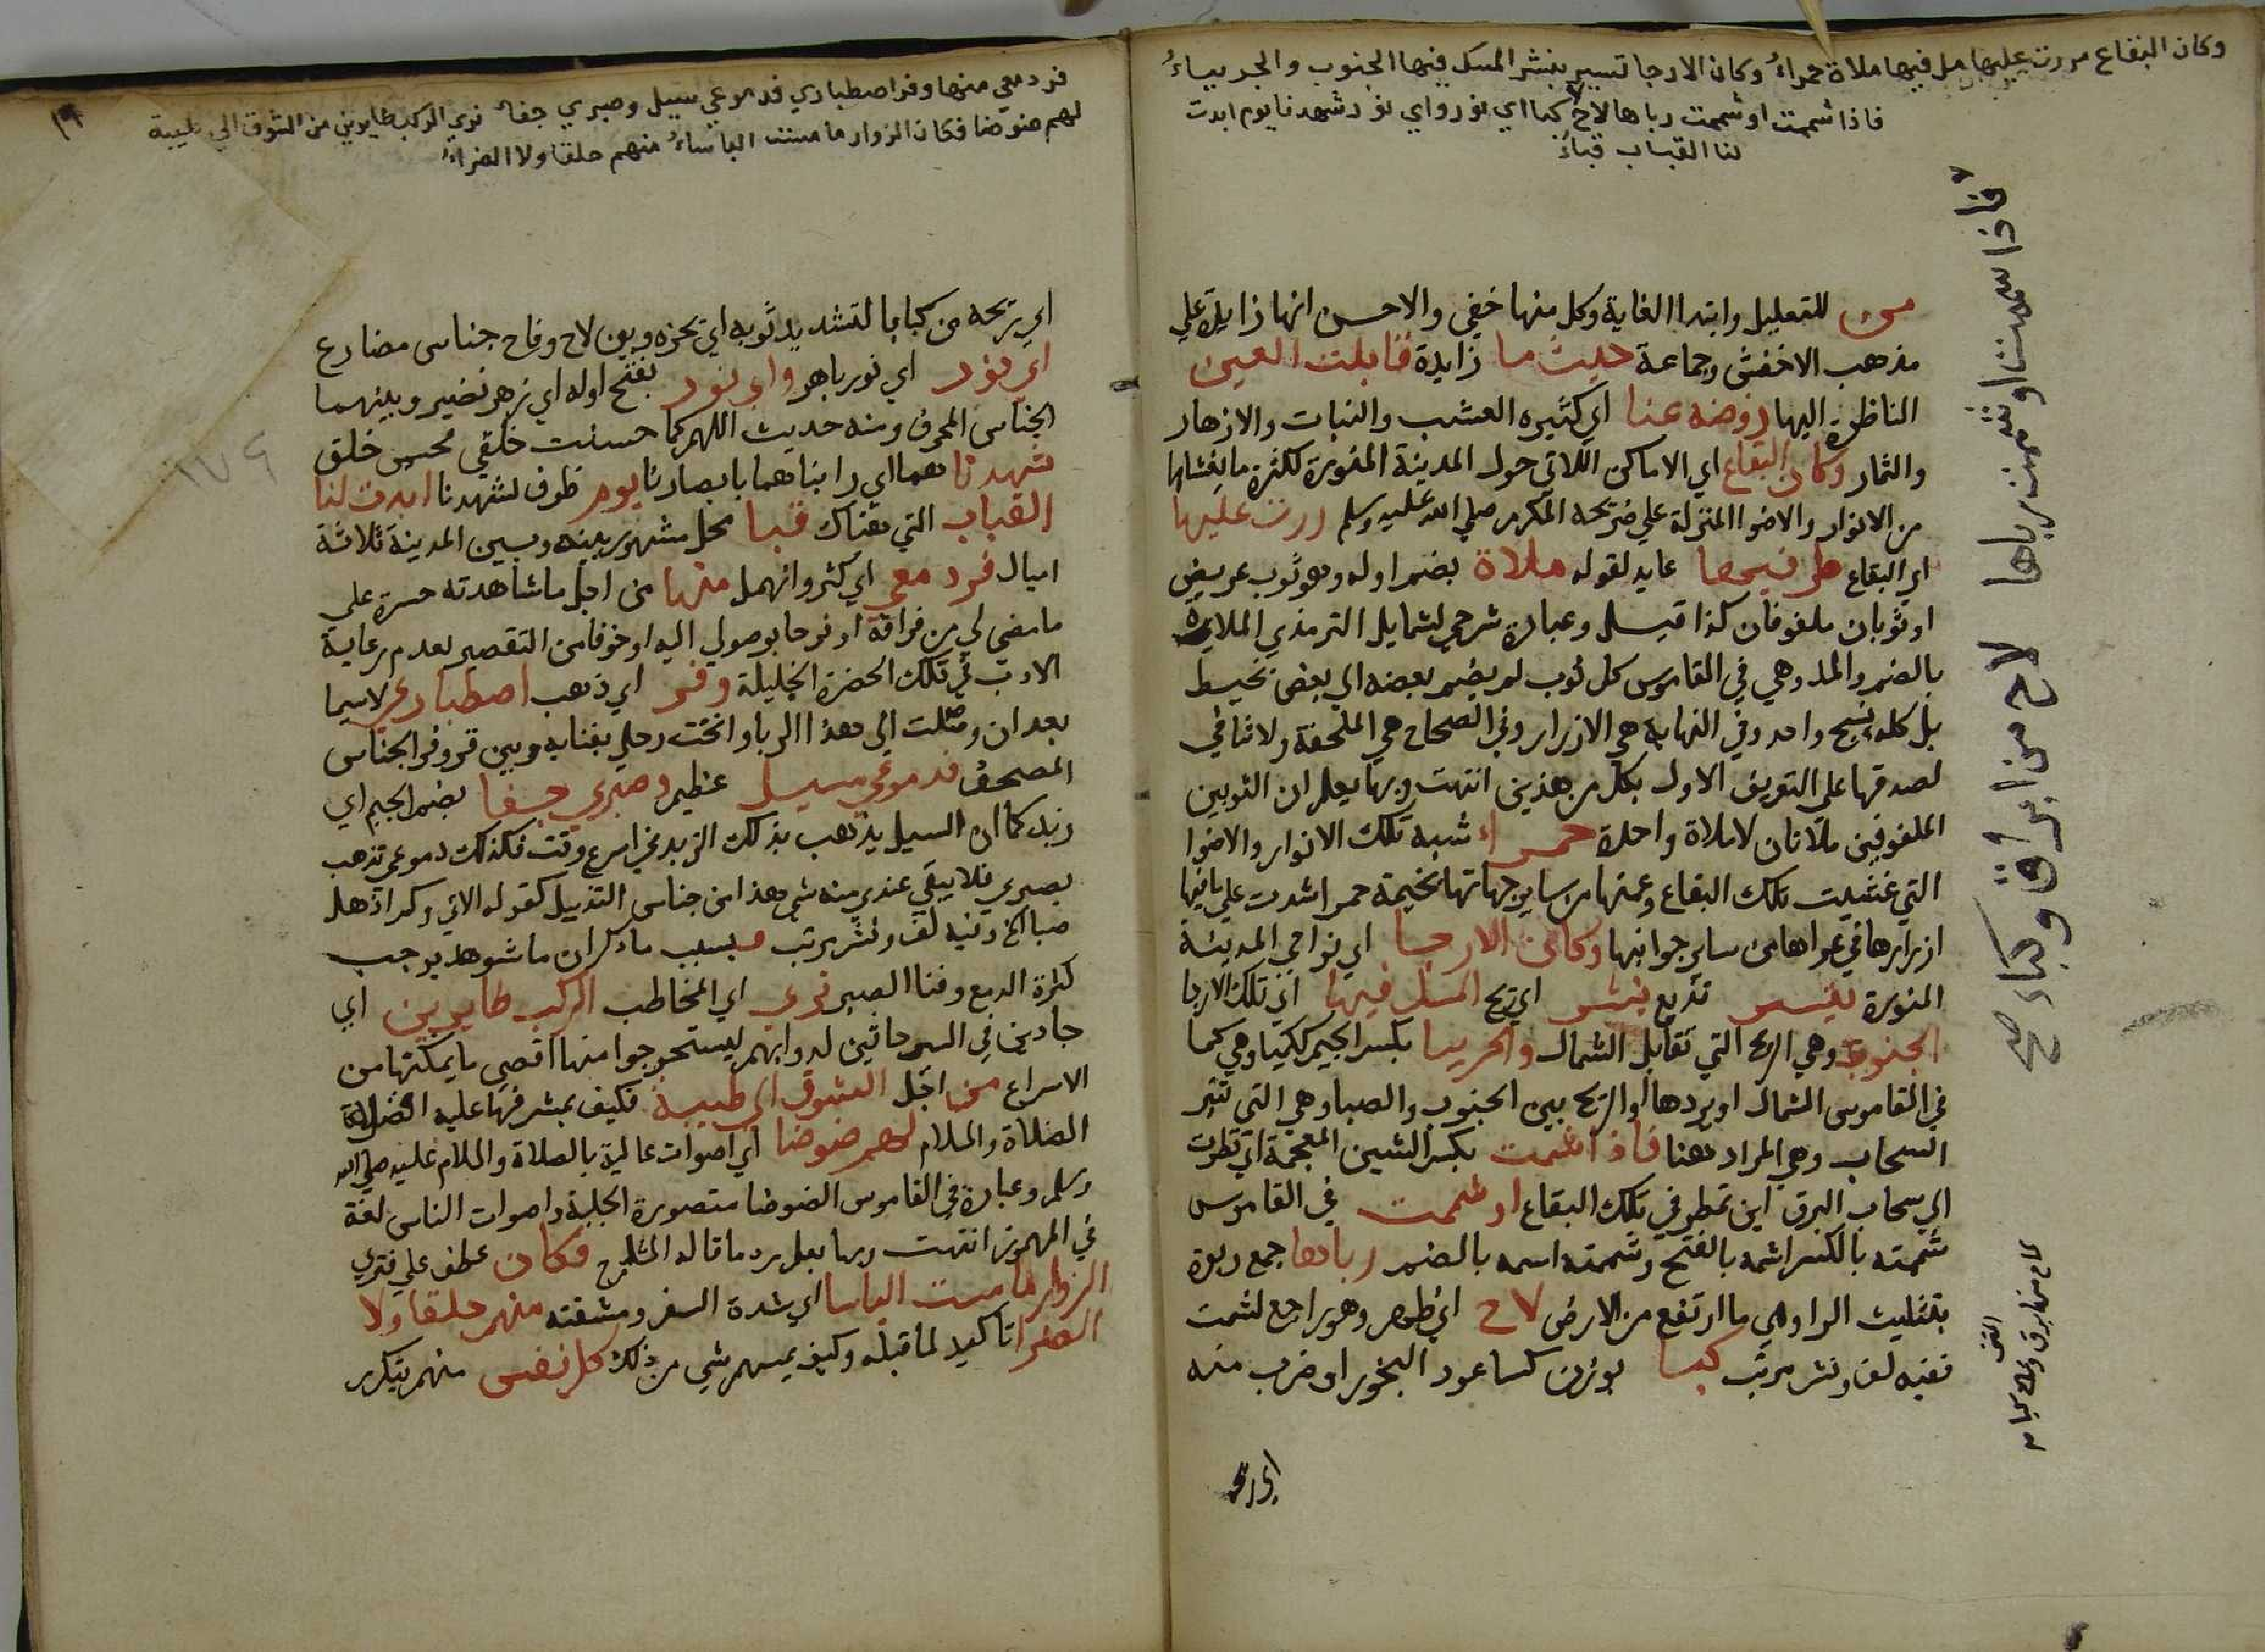 وكان البقاع مررت عليها من فيها ملاة حمراءُ وكان الارجا تسير بنشر المسك فيها الجنوب والجربياءُ
فاذا شمت او شممت رباها لاح كبا اي نور واي نور شهدنا يوم ابدت
لنا القباب قباءُ
من للتعليل وابتدا الغاية وكل منها خفي والاحسن انها زايدة علي
مذهب الاخفش وجماعة حيث ما زايدة قابلت العين
الناظرة اليها روضه غنا اي كثيره العشب والنبات والازهار
والثمار وكان البقاع اي الاماكن اللاتي حول المدينة المنورة لكثرة ما يغشاها
من الانوار والاضوا المنزلة علي ضريحه المكرم صلي الله عليه وسلم زرت عليها
اي البقاع طرفيها عايد لقوله ملاة بضم اوله وهو ثوب عريض
او ثوبان ملفوفان كذا قيل وعبارة شرحي لشمايل الترمذي الملاية
بالضم والمد وهي في القاموس كل ثوب لم يضم بعضه الي بعض بخيط
بل كله نسج واحد وفي النهاية هي الازار وفي الصحاح هي الملحفة ولا تنافي
لصدقها علي التعريف الاول بكل من هذين انتهت وبها يعلم ان الثوبين
الملفوفين ملاتان لا ملاة واحدة حمراء شبه تلك الانوار والاضوا
التي غشيت تلك البقاع وعمتها من ساير جهاتها بخيمة حمرا شدت علي ما فيها
ازرارها في عراها من ساير جوانبها وكان الارجا اي نواحي المدينة
المنورة ينشر تذيع ينشر اي ريح المسك فيها اي تلك الارجا
الجنوب وهي الريح التي تقابل الشمال والجربيا بكسر الجيم ككيميا وهي كما
في القاموس الشمال او بردها او الريح بين الجنوب والصبا وهي التي تثير
السحاب وهي المراد هنا فاذا شمت بكسر الشين المعجمة اي نظرت
الي سحاب البرق اين تمطر في تلك البقاع او شممت في القاموس
شممته بالكسر اشمه بالفتح وشممته اشمه بالضم رباها جمع ربوة
بتثليث الرا وهي ما ارتفع من الارض لاح اي ظهر وهو راجع لشمت
ففيه لف ونشر مرتب كبا بوزن كسا عود البخور او ضرب منه
اي ريحه
فاذا شمت او شممت رباها لاح من ابرق وكباء صح
لاح منها برق وفاح كباء
فرد معي منها وفر اصطباري فدموعي سيل وصبري جفاءُ نري الركب طايرين من الشوق الي طيبة
لهم ضوضا فكان الزوار ما مست الباساءُ منهم خلقا ولا الضراءُ
اي ريحه من كبا بالتشديد ثوبه اي بخره وبين لاح وفاح جناس مضارع
اي نور اي نور باهر واي نور بفتح اوله اي زهر نضير وبينهما
الجناس المحرف ومنه حديث اللهم كما حسنت خلقي فحسن خلقي
شهدنا هما اي راينا هما بابصارنا يوم ظرف لشهدنا ابدت لنا
القباب التي هناك قبا محل مشهور بينه وبين المدينة ثلاثة
اميال فرد معي اي كثر وانهمل منها من اجل ما شاهدته حسرة علي
ما مضي لي من فراقه او فرحا بوصولي اليه او خوفا من التقصير لعدم رعاية
الادب في تلك الحضرة الجليلة وفر اي ذهب اصطباري لاسيما
بعد ان وصلت الي هذا الربا وانخت رحلي بفنايه وبين قر وفر الجناس
المصحف فدموعي سيل عظيم وصبري جفا بضم الجيم اي
زبد كما ان السيل يذهب بذلك الزبد في اسرع وقت فكذلك دموعي تذهب
بصبري فلا يبقي عندي منه شي هذا من جناس التذييل كقوله الاتي وكم اذهل
صبا الخ وفيه لف ونشر مرتب بسبب ما ذكر ان ما شوهد يوجب
كثرة الدمع وفنا الصبر نري اي المخاطب الركب طايرين اي
جادين في السير حاثين لدوابهم ليستخرجوا منها اقصي ما يمكنها من
الاسراع من اجل الشوق الي طيبة فكيف بمشرفها عليه افضل
الصلاة والسلام لهم ضوضا اي اصوات عالية بالصلاة والسلام عليه صلي الله
وسلم وعبارة في القاموس الضوضا مقصورة الجلبة واصوات الناس لغة
في المهموز انتهت وبها يعلم رد ما قاله الشارح فكان عطف علي فتري
الزوار ما مست الباسا اي شدة السفر ومشقته منهم خلقا ولا
الضرا تاكيد لما قبله وكيف يمسهم شي من ذلك كل نفس منهم بتكرر